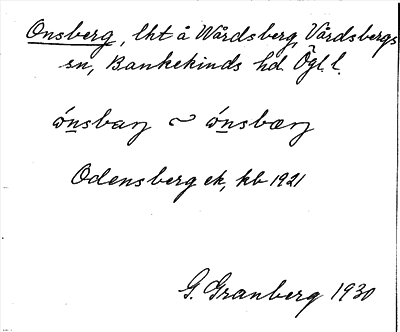 Onsberg, lht å Wårdsberg, Vårdsbergs
sn, Bankekinds hd. Ögl. l.
ónsbaŋ ~ ónsbæŋ
Odensberg ek, kb 1921
G. Granberg 1930